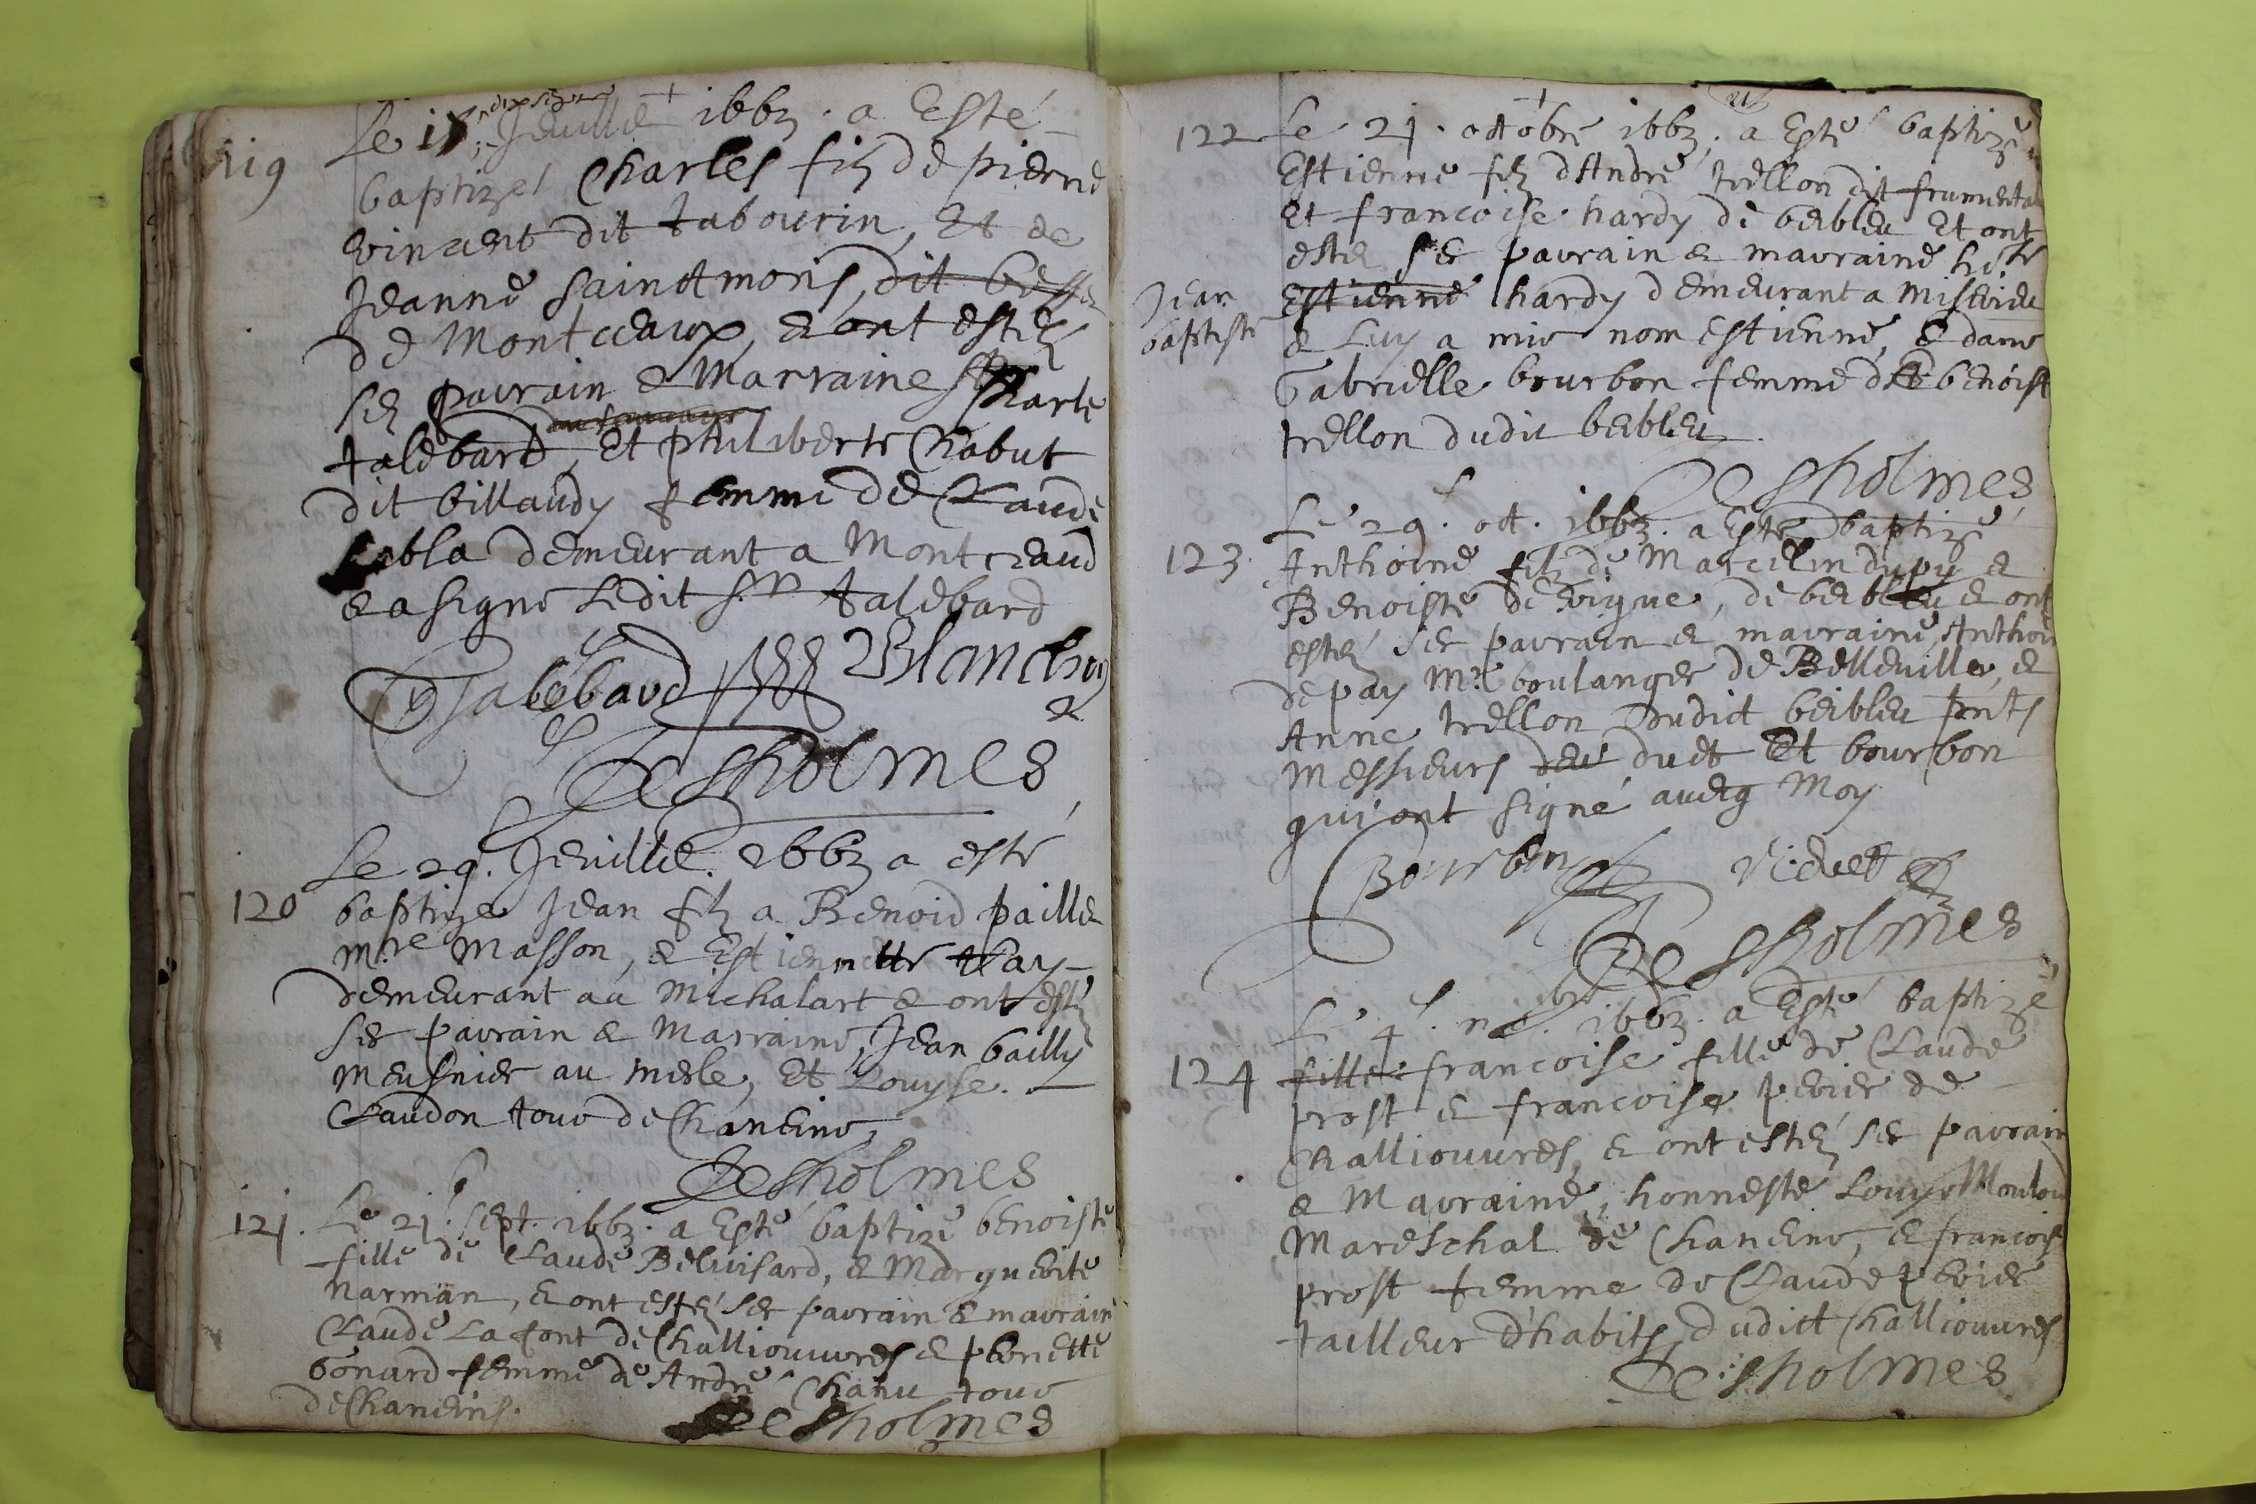 119
Le 17 Jeuillie 1663 . a Esté
baptize Charles filz de pierre
vincent dit tabourin, Et de
Jeanne sainctmoris, dit
de Montceaux, & ont estez
sez parrain & Marraine Sr Charle
talebard, Et philiberte Chabut
dit billaudy femme de Claude
demeurant a Montceaud
& a signe Ledit Sr. talebard
Talebard Blanchon
Desholmes
120
Le 29. Jeuillie. 1663 a esté
baptize Jean filz a Benoid paille
Mre Masson, & Estiennette
demeurant au Michalart & ont estéz
ses parrain & Marraine, Jean bailly
meusnier au mesle, Et Louyse.
Claudon tous de Chaneins,
Desholmes
121.
Le 21. sept. 1663. a Esté baptize benoiste
fille de Claude Beluisard, & Marguerite
Narman, & ont estéz ses parrain & marraine
Claude La font de Challiouvres & pernette
bonard femme de André Chanu tous
de Chaneins.
Desholmes
122
Le 21. octobre 1663. a Esté baptizé
Estienne filz d'André trellon dit frumental
Et francoise hardy de beibleu Et ont
estéz ses parrain & marraine
Jean
baptiste
Estienne hardy demeurant a Miserieu
& Luy a mis nom estienne, & dame
Gabrielle bourbon femme de benoist
trellon dudit beibleu
Desholmes
123.
Le 29. oct. 1663. a Esté baptizé
Anthoine filz de Marcelin dupuy &
Benoiste de vigne, de beibleu & ont
estéz ses parrain & marraine, Anthoi
depay Mre boulanger de Belleville, &
Anne trellon dudict beibleu pnts
Messieurs duet Et bourbon
qui ont signé aueq Moy
Bourbon Viduet
Desholmes
124
Le 4. 1663. a Esté baptizé
fille francoise fille de Claude
prost & francoise perier de
Challiouvres, & ont estéz ses parrain
& Marraine, honneste Louys Moulou
Mareschal de Chaneins, & francoise
prost femme de Claude perier
tailleur d'habits, dudict Challiouvres
Desholmes